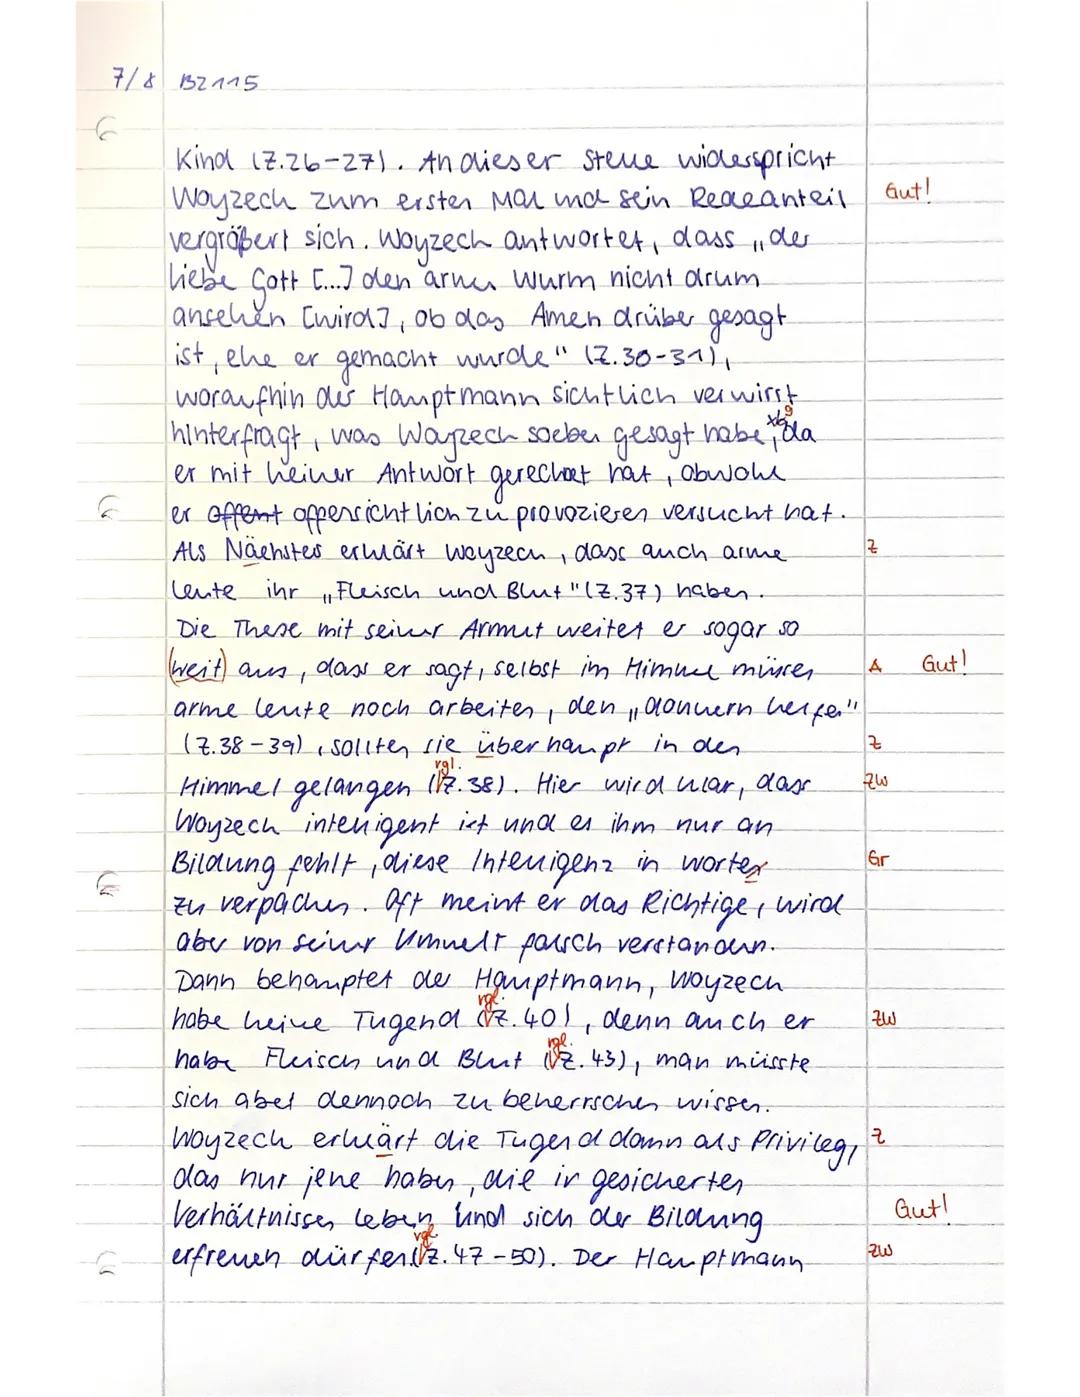 7/8 BZ115
Kind (Z.26-27). An dieser Stelle widerspricht
Woyzeck zum ersten Mal und sein Redeanteil Gut!
vergrößert sich. Woyzeck antwortet, dass „der
liebe Gott [...] den armen Wurm nicht drum
ansehen [wird], ob das Amen drüber gesagt
ist, ehe er gemacht wurde" (Z.30-31),
woraufhin der Hauptmann sichtlich verwirrt
hinterfragt, was Woyzeck soeben gesagt habe, da
er mit keiner Antwort gerechnet hat, obwohl
er offensichtlich zu provozieren versucht hat.
Als Nächstes erklärt Woyzeck, dass auch arme Z
Leute ihr „Fleisch und Blut" (Z.37) haben.
Die These mit seiner Armut weitet er sogar so
weit aus, dass er sagt, selbst im Himmel müssen A Gut!
arme Leute noch arbeiten, den „donnern helfen"
(Z.38-39), sollten sie überhaupt in den Z
Himmel gelangen (vgl. Z.38). Hier wird klar, dass ZW
Woyzeck intelligent ist und es ihm nur an
Bildung fehlt, diese Intelligenz in Worten Gr
zu verpacken. Oft meint er das Richtige, wird
aber von seiner Umwelt falsch verstanden.
Dann behauptet der Hauptmann, Woyzeck
habe keine Tugend (vgl. Z.40), denn auch er ZW
habe Fleisch und Blut (vgl. Z.43), man müsste
sich aber dennoch zu beherrschen wissen.
Woyzeck erklärt die Tugend dann als Privileg, Z
das nur jene haben, die in gesicherten
Verhältnissen leben und sich der Bildung Gut!
erfreuen dürfen (vgl. Z.47-50). Der Hauptmann ZW